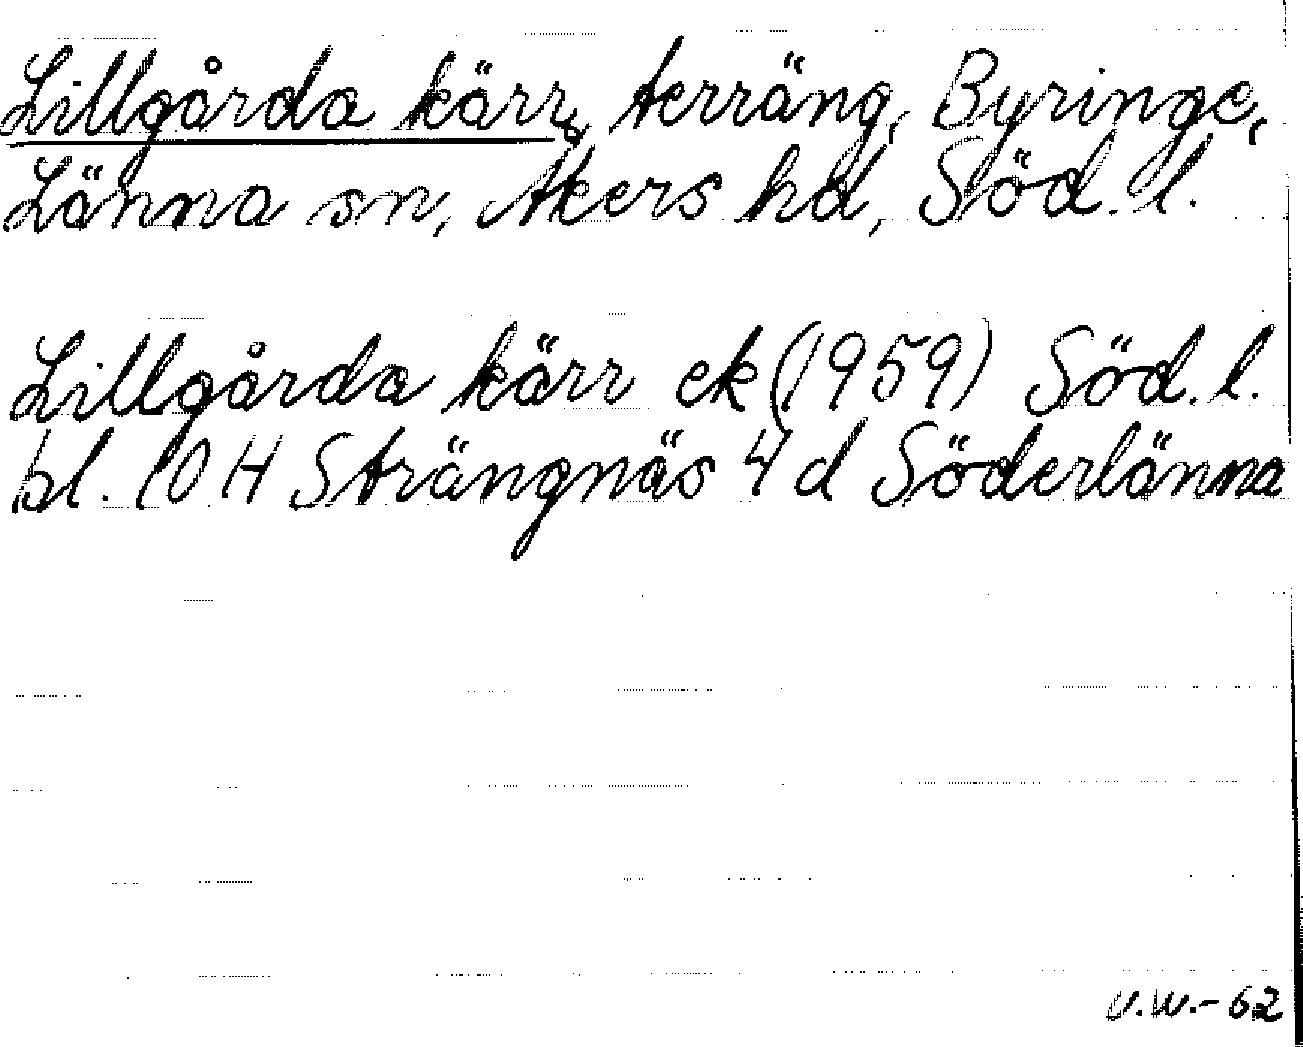 Lillgårda kärr, terräng, Byringe,
Länna sn, Åkers hd, Söd. l.
Lillgårda kärr ek (1959) Söd. l.
bl. 10 H Strängnäs 4 d Söderlänna
U.W.-62